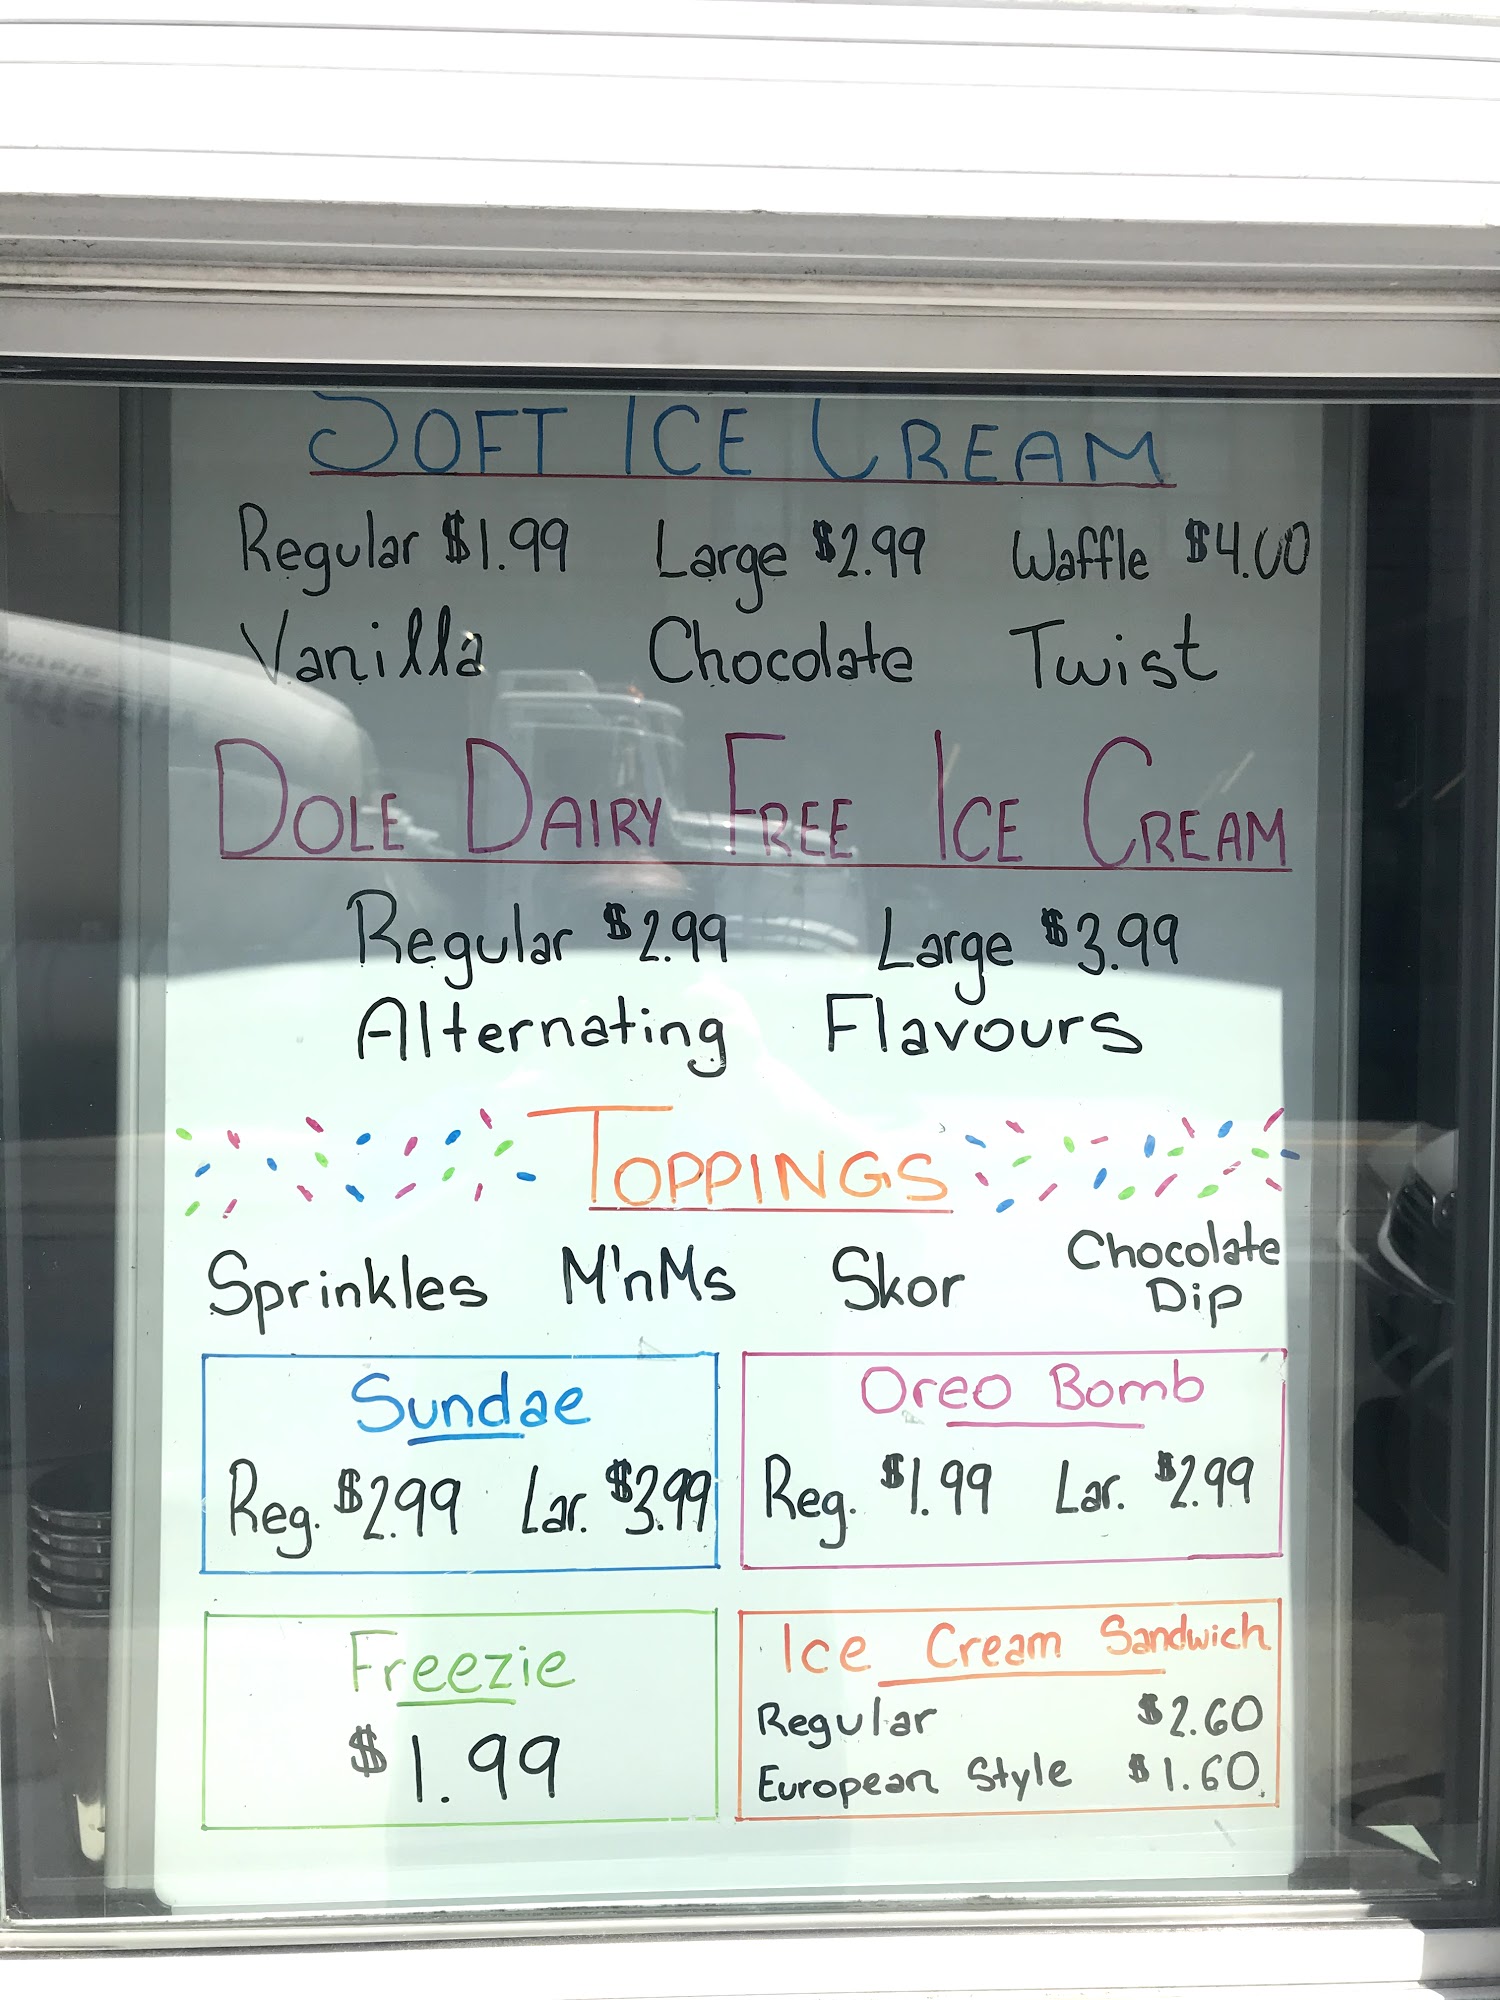 SOFT ICE CREAM
Regular $1.99 Large $2.99 Waffle $4.00
Vanilla Chocolate Twist
DOLE DAIRY FREE ICE CREAM
Regular $2.99 Large $3.99
Alternating Flavours
TOPPINGS
Sprinkles M'nMs Skor Chocolate Dip
Sundae
Reg. $2.99 Lar. $3.99
Oreo Bomb
Reg. $1.99 Lar. $2.99
Freezie
$1.99
Ice Cream Sandwich
Regular $2.60
European Style $1.60